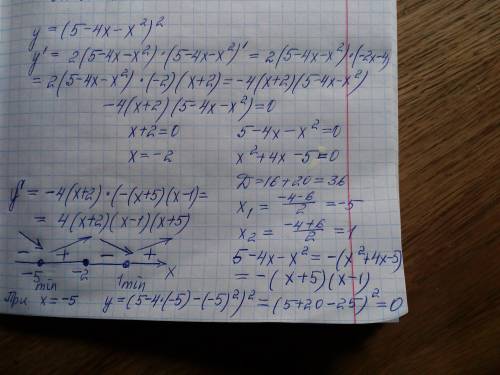 y = (5-4x-x²)²
y' = 2(5-4x-x²)·(5-4x-x²)' = 2(5-4x-x²)·(-2x-4)
= 2(5-4x-x²)·(-2)(x+2) = -4(x+2)(5-4x-x²)
-4(x+2)(5-4x-x²)=0
x+2=0
x=-2
5-4x-x²=0
x²+4x-5=0
D=16+20=36
x₁ = (-4-6)/2 = -5
x₂ = (-4+6)/2 = 1
5-4x-x² = -(x²+4x-5)
= -(x+5)(x-1)
y' = -4(x+2)·(-(x+5)(x-1)=
= 4(x+2)(x-1)(x+5)
- + - +
-5 -2 1 x
min min
При x=-5 y=(5-4·(-5)-(-5)²)² = (5+20-25)² = 0